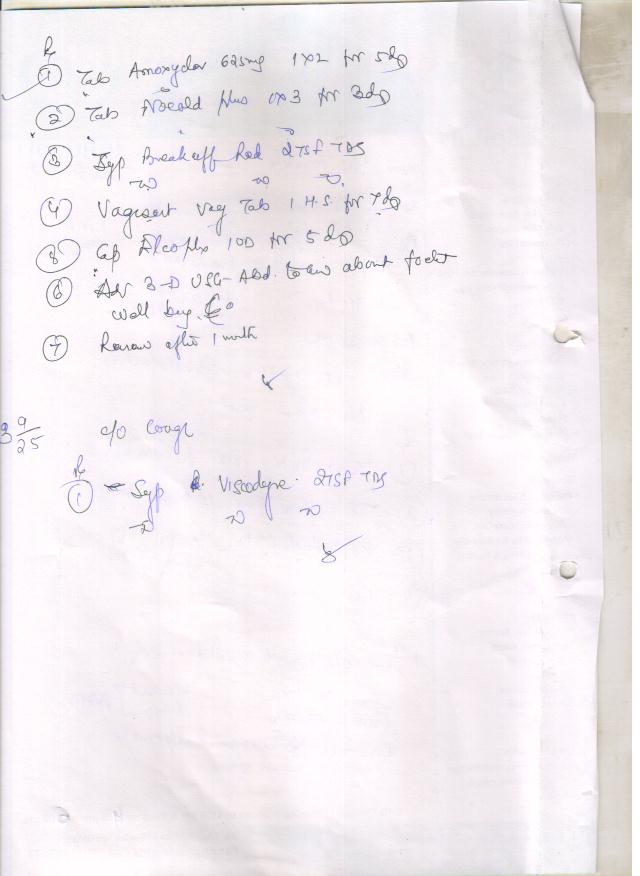 Rx
① Tab Amoxyclav 625mg 1x2 for 5dys
② Tab Nocold plus 1x3 for 3dys
③ Syp Breakoff Red 2TSF TDS
④ Vagisert Vag Tab 1 H.S. for 7dys
⑤ Cap 1OD for 5dys
⑥ Adv 3-D USG-Abd. to about foetal
well being. E
⑦ Review after 1 month
9/25 c/o Cough
Rx
① Syp Viscodyne. 2TSF TDS